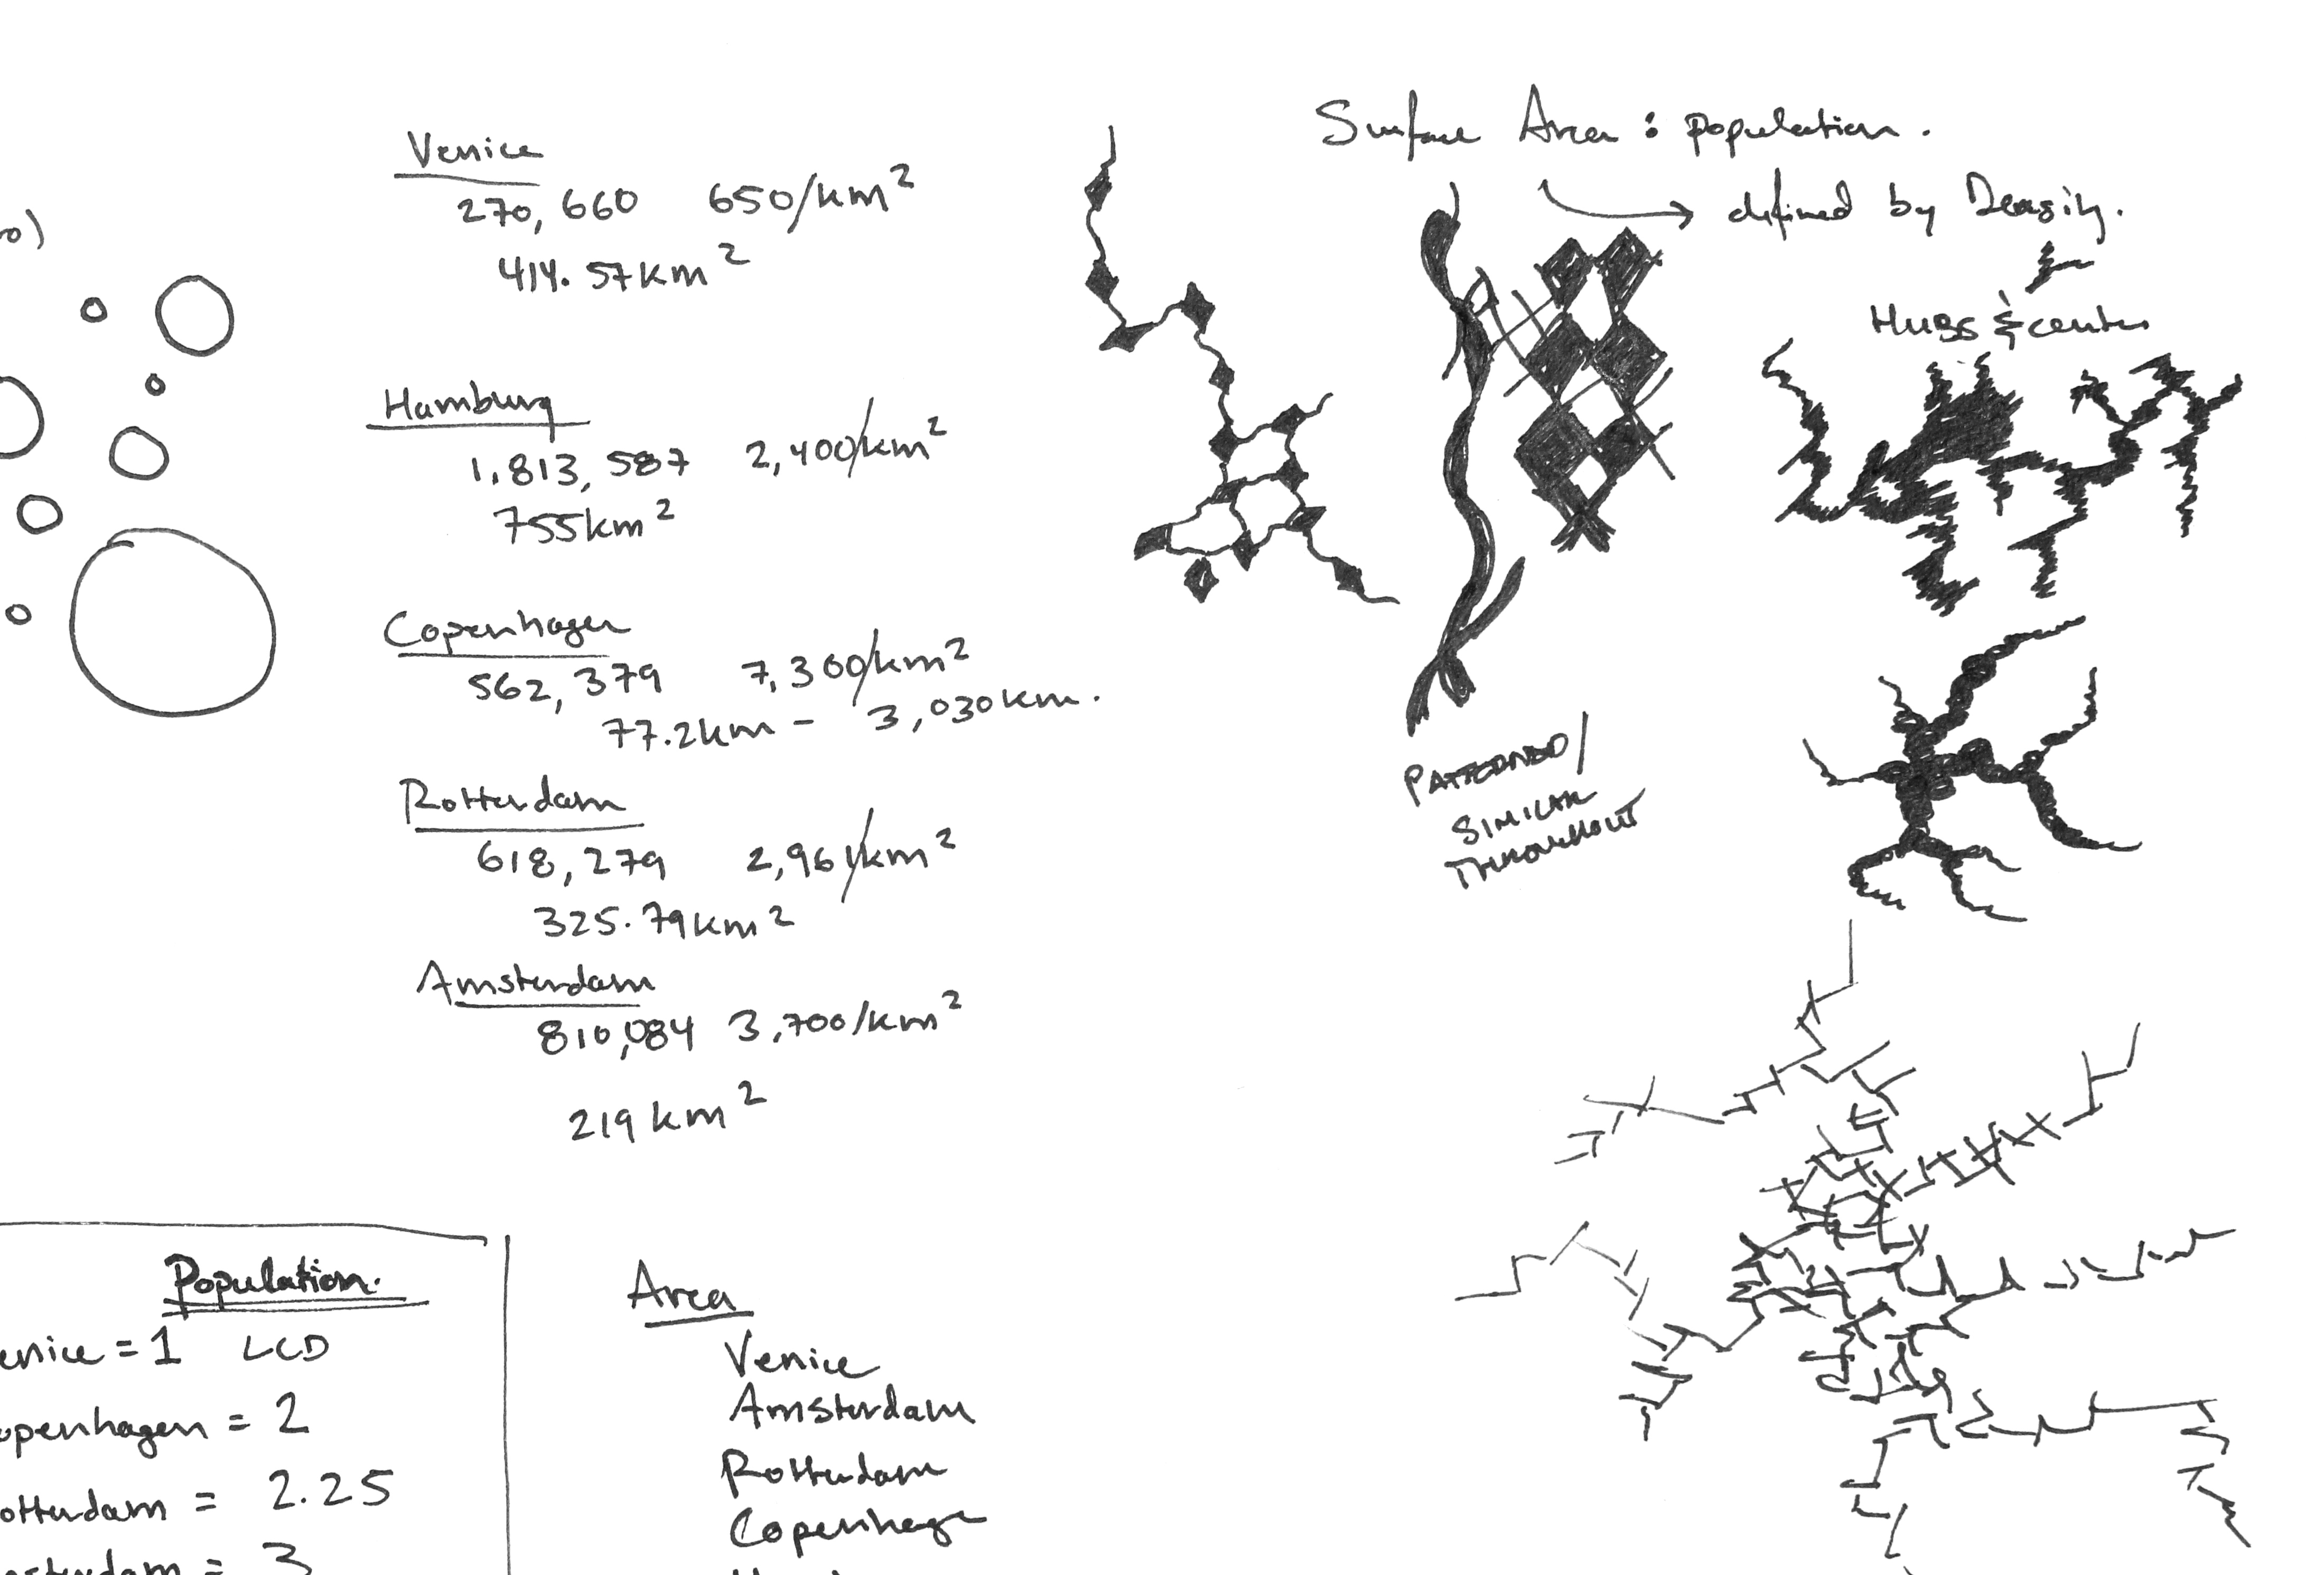 ro)
Venice
270,660 650/km²
414.57km²
Hamburg
1,813,587 2,400/km²
755km²
Copenhagen
562,379 7,300/km²
77.2km - 3,030km.
Rotterdam
618,279 2,961/km²
325.79km²
Amsterdam
810,084 3,700/km²
219km²
Surface Area : population.
defined by Density.
HUBS & centers
PATTERNED/
SIMILAR
THROUGHOUT
Population.
enice = 1 LCD
openhagen = 2
otterdam = 2.25
sterdam = 3
Area
Venice
Amsterdam
Rotterdam
Copenhagen